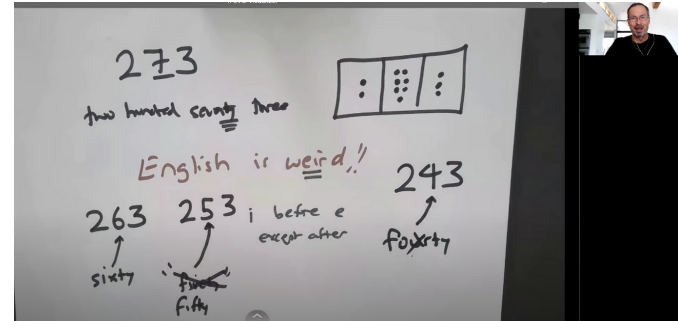 273
two hundred seventy three
English is weird!!
243
263 253 i before e
except after
fourty
sixty
fifty